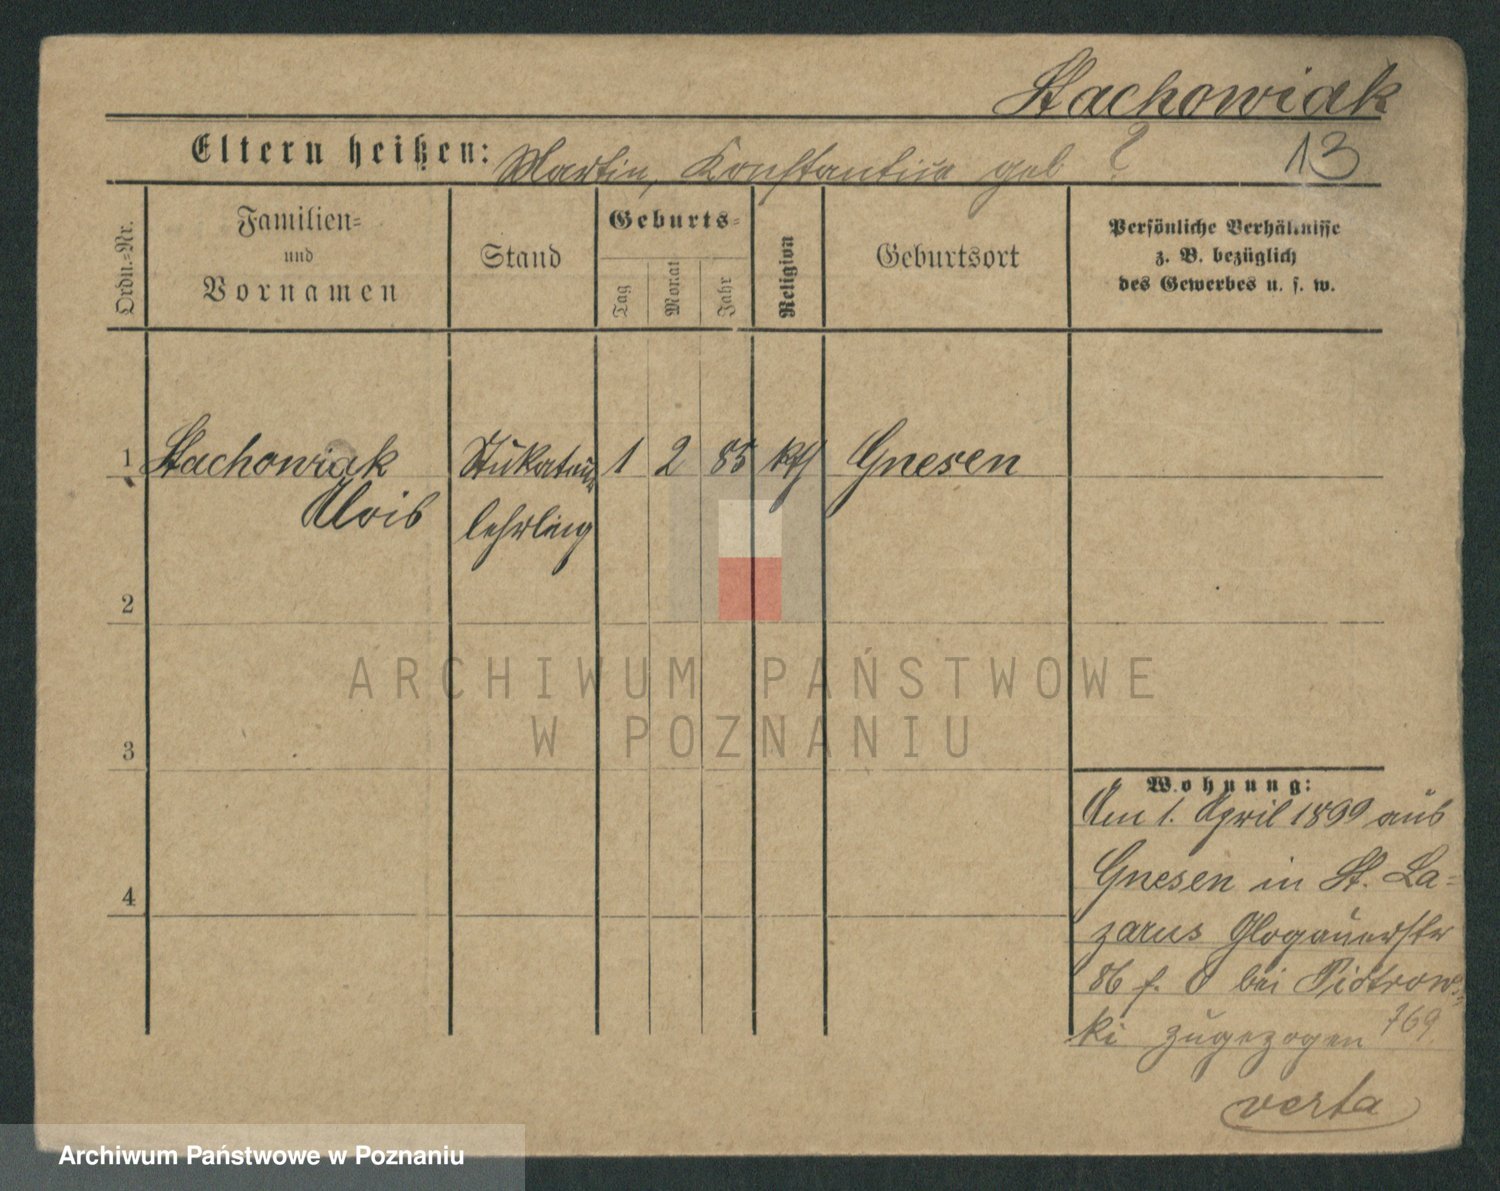 Stachowiak
Eltern heißen: Martin, Konstantine geb ? 13
Ordn.=Nr.
Familien=
und
Vornamen
Stand
Geburts=
Tag
Monat
Jahr
Religion
Geburtsort
Persönliche Verhältnisse
z. B. bezüglich
des Gewerbes u. s. w.
1 Stachowiak Stukateur 1 2 85 kth Gnesen
Alois lehrling
2
3
4
Wohnung:
Am 1. April 1899 aus
Gnesen in St. La=
zarus Glogauerstr
86 f. bei Piotrows=
ki zugezogen 769
verta
ARCHIWUM PAŃSTWOWE
W POZNANIU
Archiwum Państwowe w Poznaniu